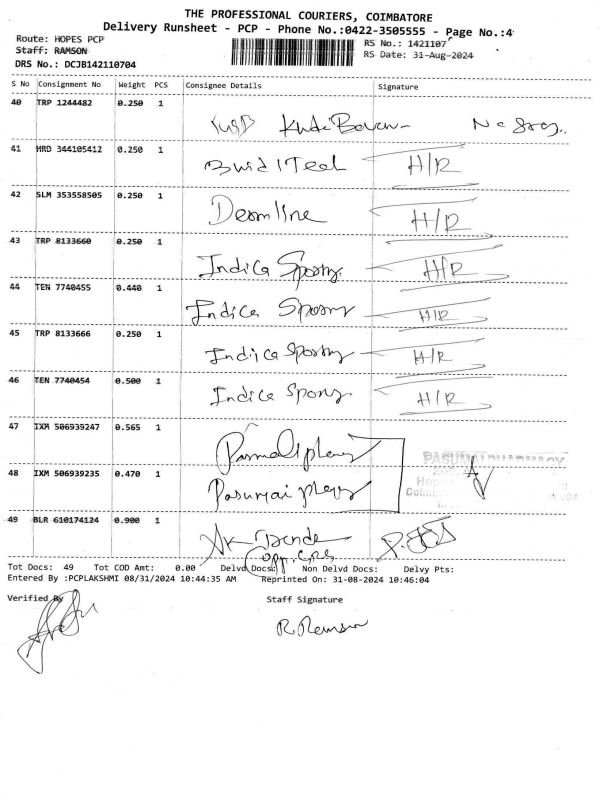 THE PROFESSIONAL COURIERS, COIMBATORE
Delivery Runsheet - PCP - Phone No.:0422-3505555 - Page No.:4
Route: HOPES PCP
RS No.: 1421107
Staff: RAMSON
RS Date: 31-Aug-2024
DRS No.: DCJB142110704
S No Consignment No Weight PCS Consignee Details Signature
40 TRP 1244482 0.250 1
41 HRD 344105412 0.250 1 H/R
42 SLM 353558505 0.250 1 H/R
43 TRP 8133660 0.250 1 Indica H/R
44 TEN 7740455 0.440 1 Indica H/R
45 TRP 8133666 0.250 1 Indica H/R
46 TEN 7740454 0.500 1 Indica H/R
47 IXM 506939247 0.565 1
PASUMAI PHARMACY
48 IXM 506939235 0.470 1 Pasumai
49 BLR 610174124 0.900 1
Tot Docs: 49 Tot COD Amt: 0.00 Delvd Docs: Non Delvd Docs: Delvy Pts:
Entered By :PCPLAKSHMI 08/31/2024 10:44:35 AM Reprinted On: 31-08-2024 10:46:04
Verified By Staff Signature
R. Ramson